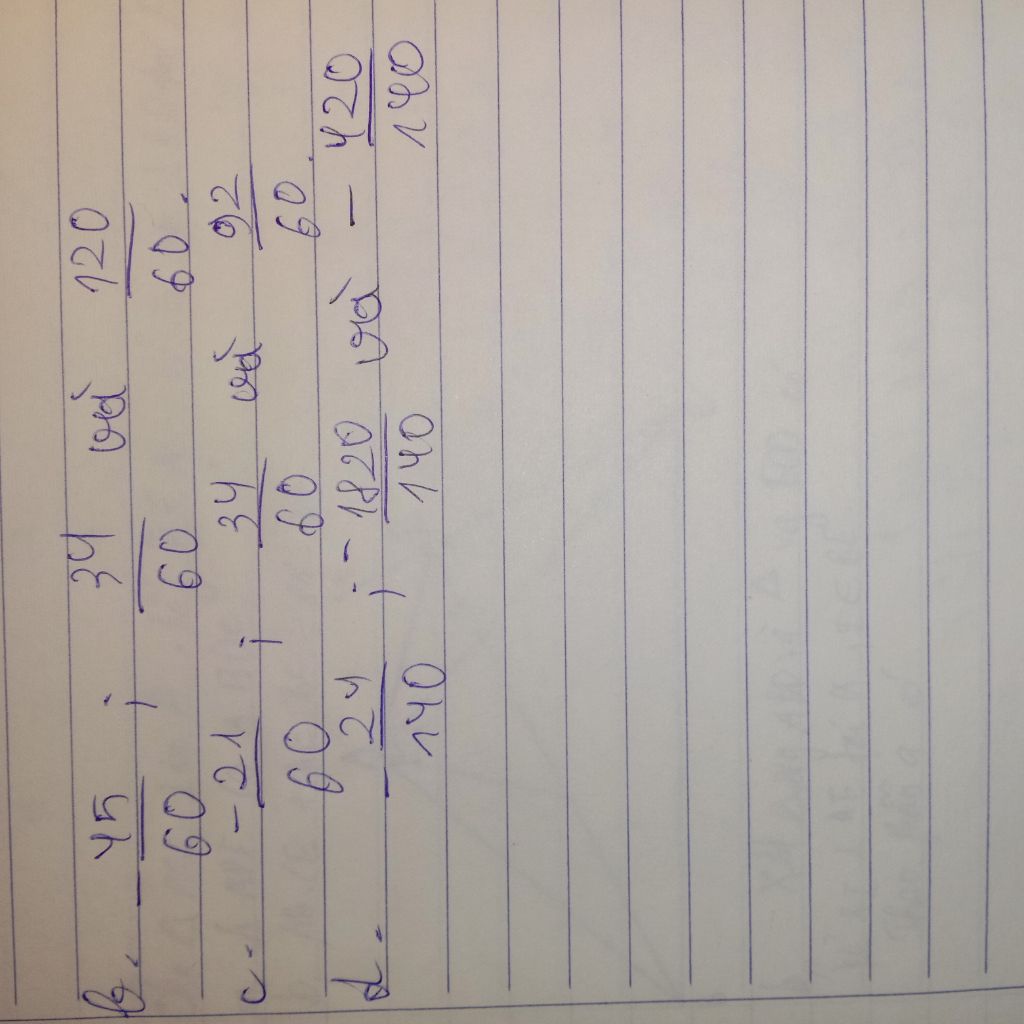 b. - 45/60 ; 34/60 và 120/60.
c. -21/60 ; 34/60 và 92/60.
d. - 24/140 ; -1820/140 và - 420/140